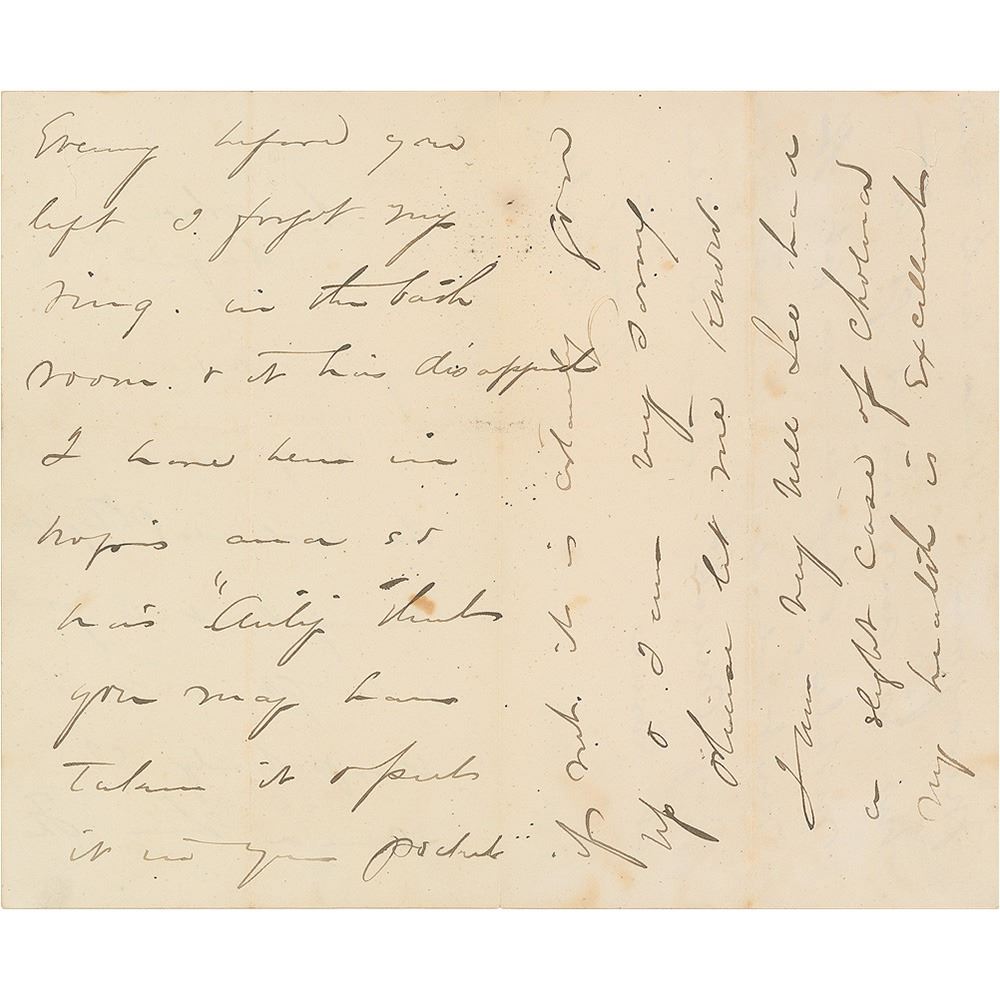 Evening before you
left I forgot my
ring. in the bath
room. & it has disappd
I have been in
hopes and so
has "Auty" that
you may have
Taken it & put
it in your pocket
if not. it is certainly gone
up & I am very sorry.
Please let me know.
I am very well Leo had
a slight case of cholera
My health is Excellent